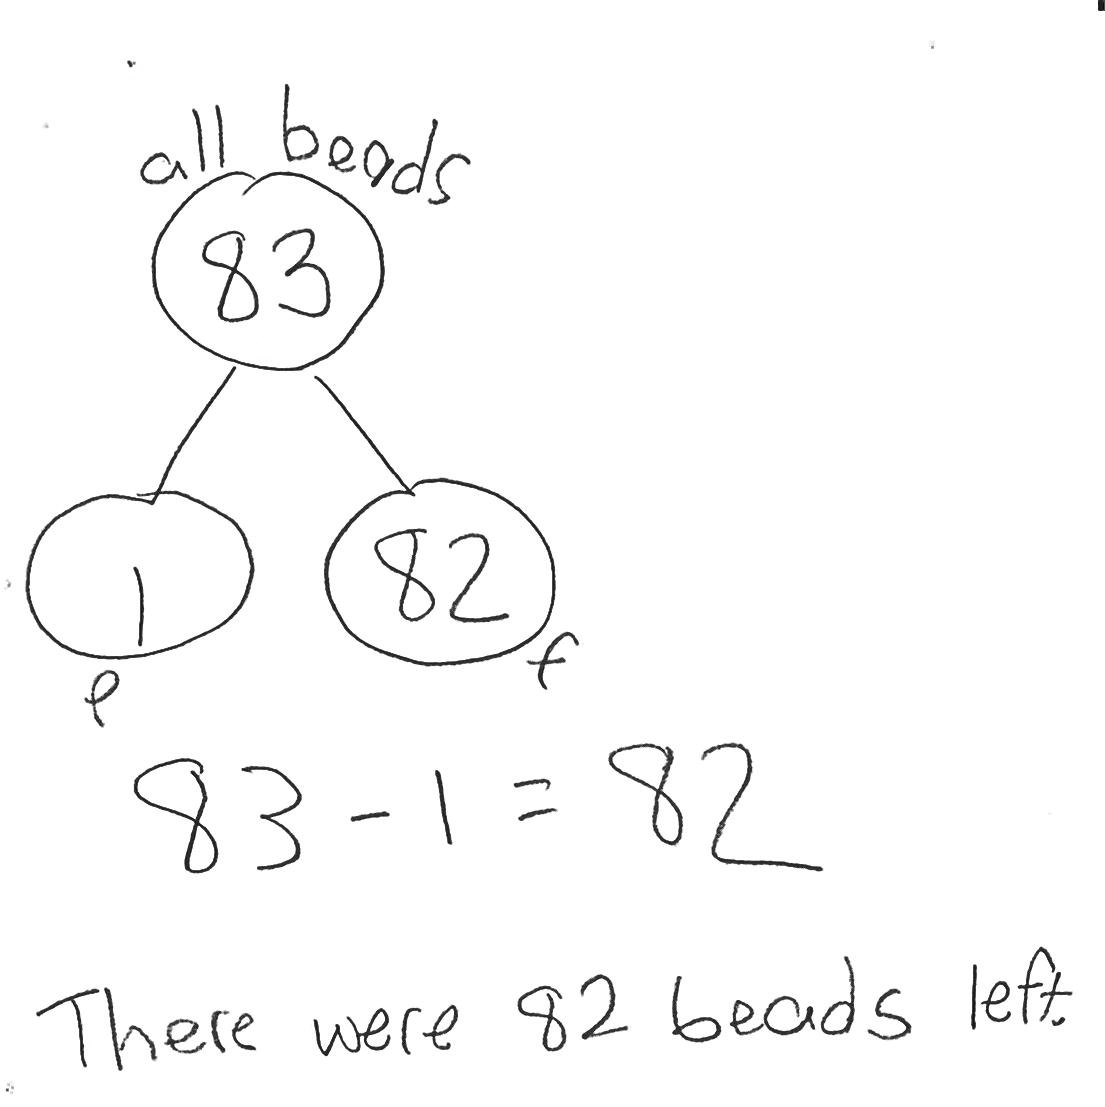 all beads
83
1
82
p
f
83 - 1 = 82
There were 82 beads left.